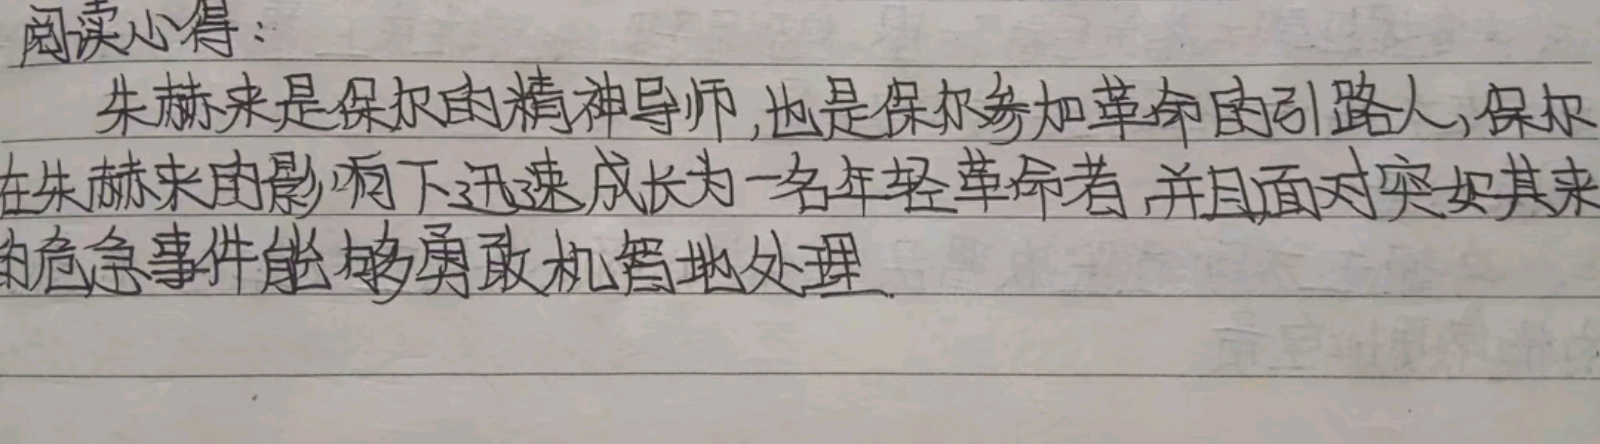 阅读心得：
朱赫来是保尔的精神导师,也是保尔参加革命的引路人,保尔
在朱赫来的影响下迅速成长为一名年轻革命者,并且面对突如其来
的危急事件能够勇敢机智地处理.